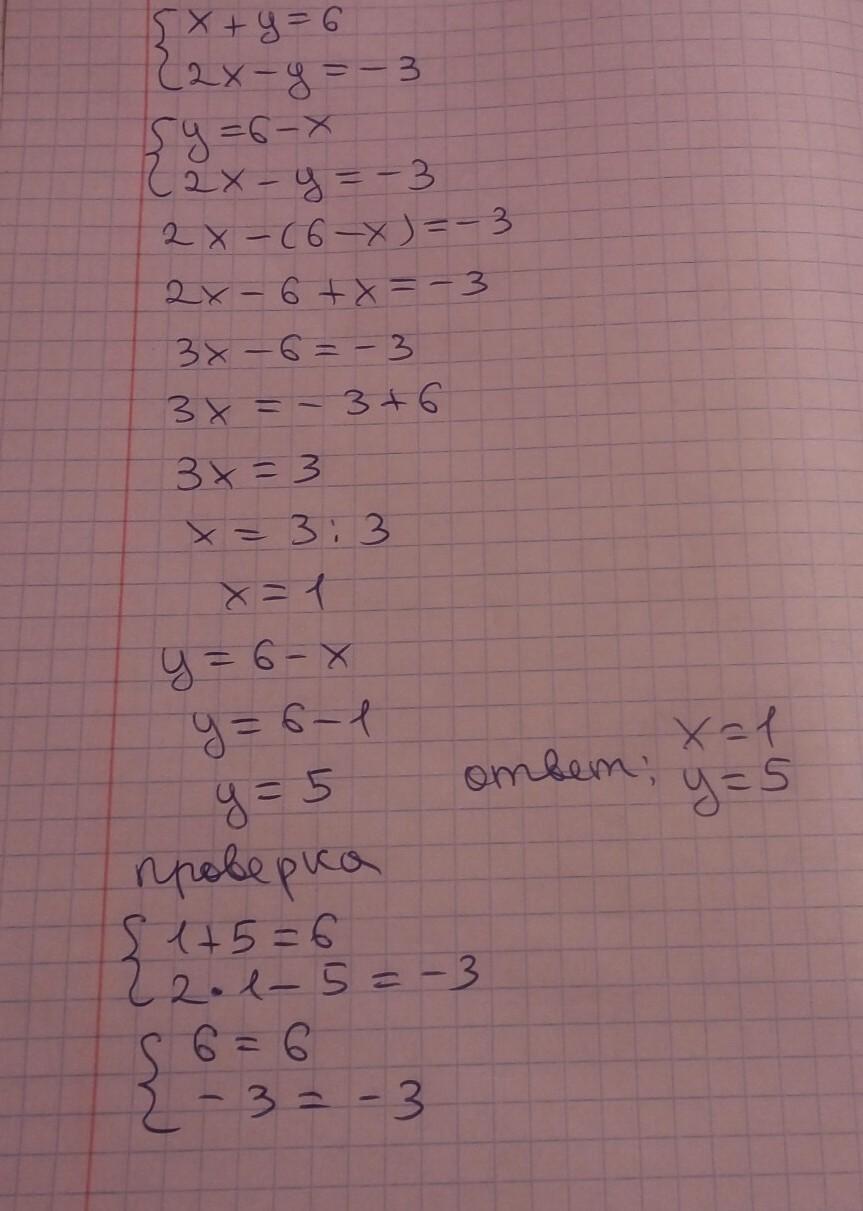 {x + y = 6
{2x - y = -3
{y = 6 - x
{2x - y = -3
2x - (6 - x) = -3
2x - 6 + x = -3
3x - 6 = -3
3x = -3 + 6
3x = 3
x = 3 : 3
x = 1
y = 6 - x
y = 6 - 1
y = 5
ответ: x = 1
y = 5
проверка
{1 + 5 = 6
{2 · 1 - 5 = -3
{6 = 6
{-3 = -3